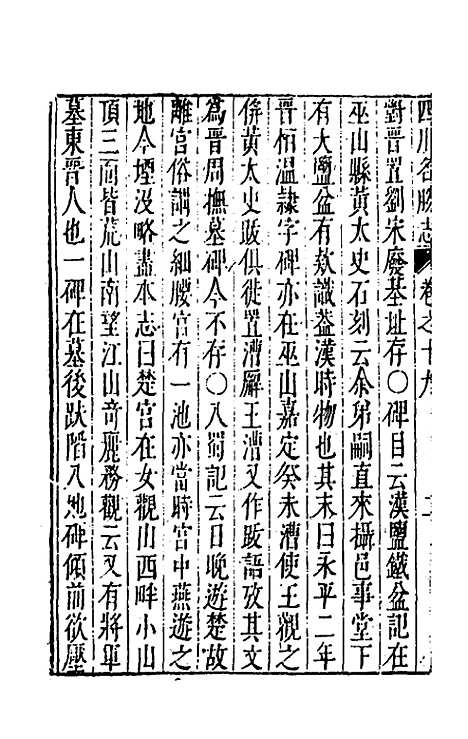 四川名勝志 卷之十九
對晉置劉宋廢基址存○碑目云漢鹽鐵盆記在
巫山縣黃太史石刻云余弟嗣直來攝邑事堂下
有大鹽盆有欵識葢漢時物也其末曰永平二年
晉栢溫隷字碑亦在巫山嘉定癸未漕使王觀之
倂黃太史䟦俱徙置漕廨王漕又作䟦語攷其文
為晉周撫墓碑今不存○入蜀記云日晚遊楚故
離宮俗謂之細腰宮有一池亦當時宮中燕遊之
地今堙沒略盡本志曰楚宮在女觀山西畔小山
頂三面皆荒山南望江山奇麗務觀云又有將軍
墓東晉人也一碑在墓後趺陷入地碑傾前欲壓